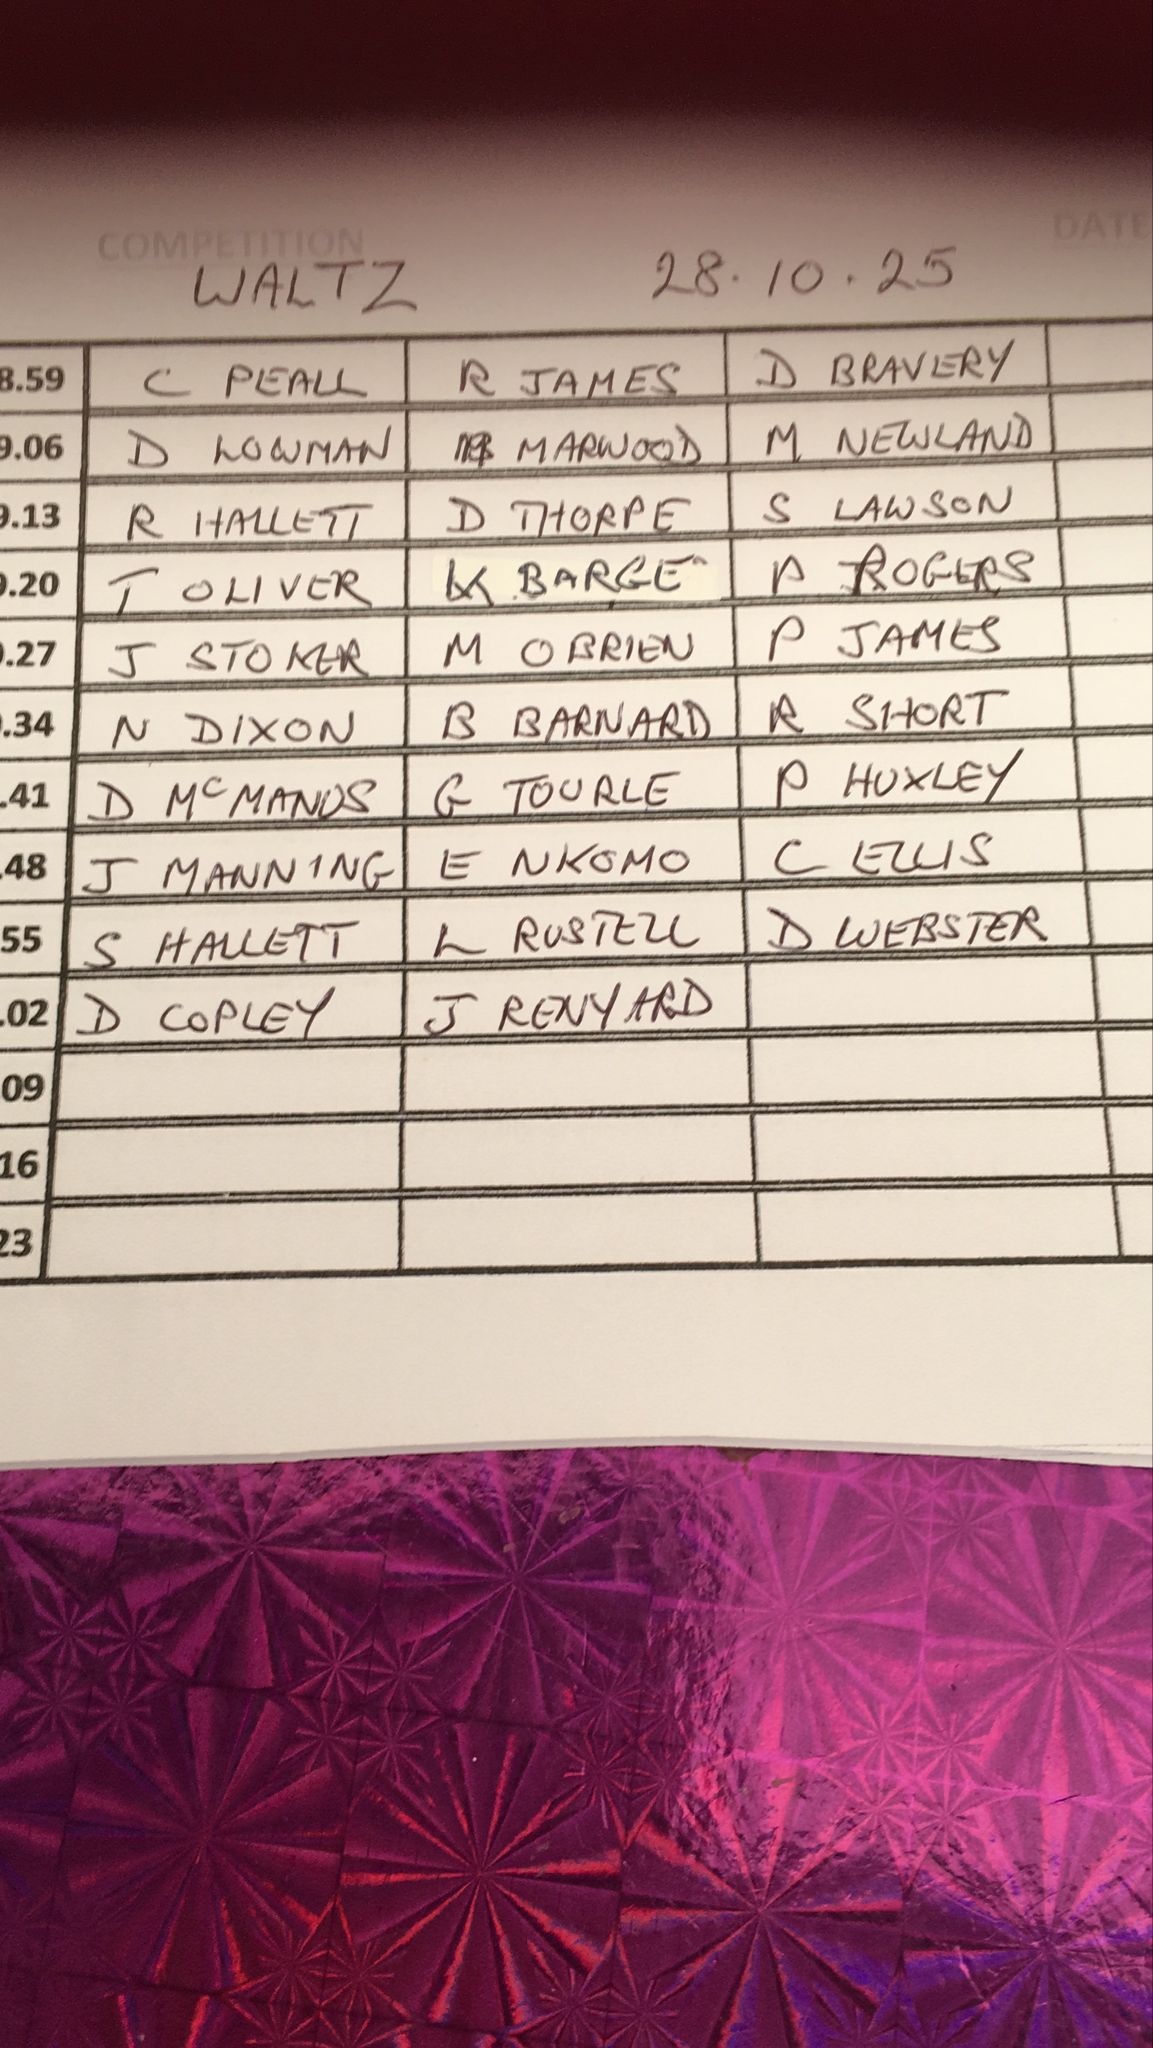 COMPETITION DATE
WALTZ 28.10.25
8.59 C PEALL R JAMES D BRAVERY
9.06 D LOWMAN MARWOOD M NEWLAND
9.13 R HALLETT D THORPE S LAWSON
.20 T OLIVER K BARGE P ROGERS
.27 J STOKER M OBRIEN P JAMES
.34 N DIXON B BARNARD R SHORT
.41 D McMANUS G TOURLE P HUXLEY
.48 J MANNING E NKOMO C ELLIS
55 S HALLETT L RUSTELL D WEBSTER
.02 D COPLEY J RENYARD
09
16
23